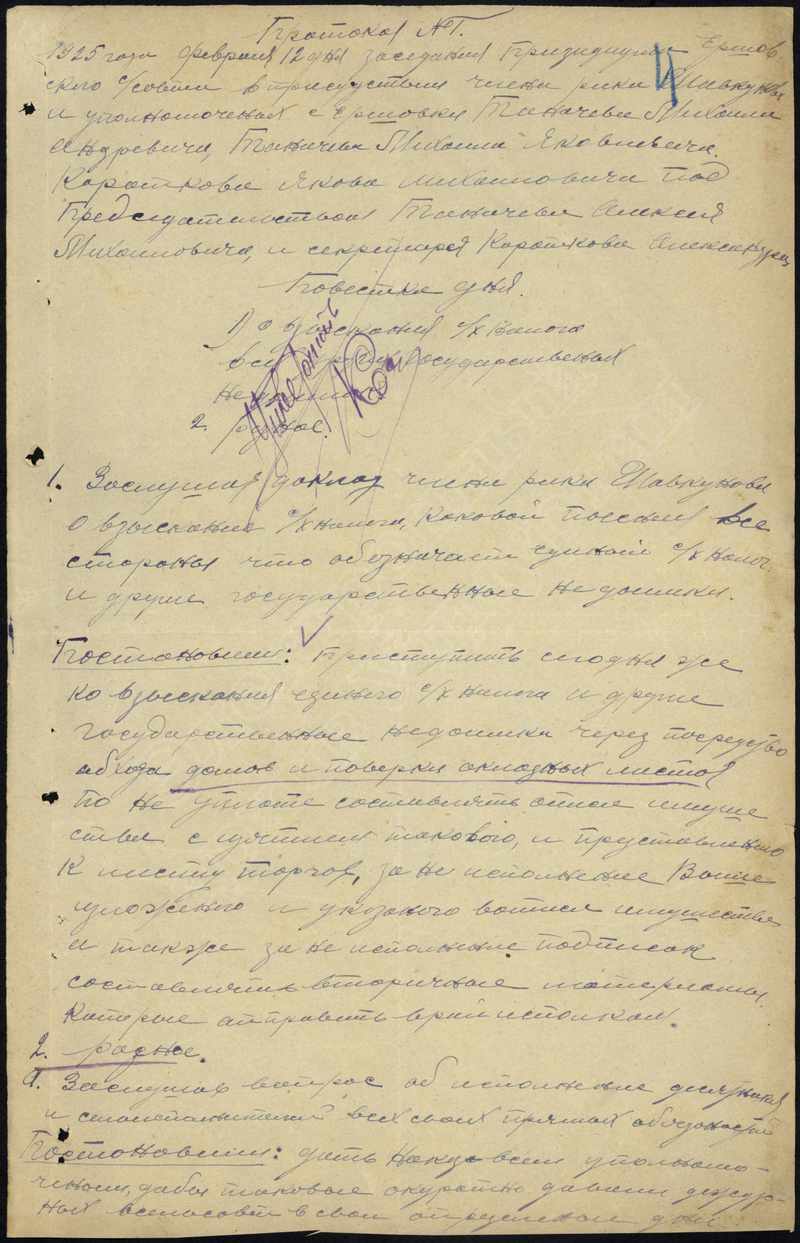 Протокол №1.
1925 года февраля 12 дня заседания Призидиума Ершов
ского с/совета в присудствии члена рика Шавкунова
и уполномоченых с Ершовки Паначева Михаила
Андревича, Паначева Михаила Яковлевича.
Короткова Якова Михаиловича под
Председательством Паначева Алексея
Михаиловича, и секретаря Короткова Александра
Повестка дня.
1) О взыскания с/х налога
всех государственых
2. Разное.
1. Заслушая доклад члена рика Шавкунова
О взыскание с/х налога, каковой поесния все
стороны что обозначает единой с/х налог.
и другие государственные недоимки.
Постановили: Приступить сегодня же
ко взыскания единого с/х налога и другие
государственные недоимки через посредство
обхода домов и поверки окладных листов
По не уплате составлять описи имуще
ства с изятием такового, и представлению
К месту торгов, за не исполнение Выше
изложеного и указаного вописи имущества
а также за не исполнение подписок
составлять вторичные материалы.
Которые отправить врайисполком.
2. разное.
а. Заслушав вопрос об исполнение
и всех своих прямых обязаностей
Постоновили: дать наказ всем уполномо-
ченым, дабы таковые окуратно давали дежур-
ных в сельсовет в свои определеные дни